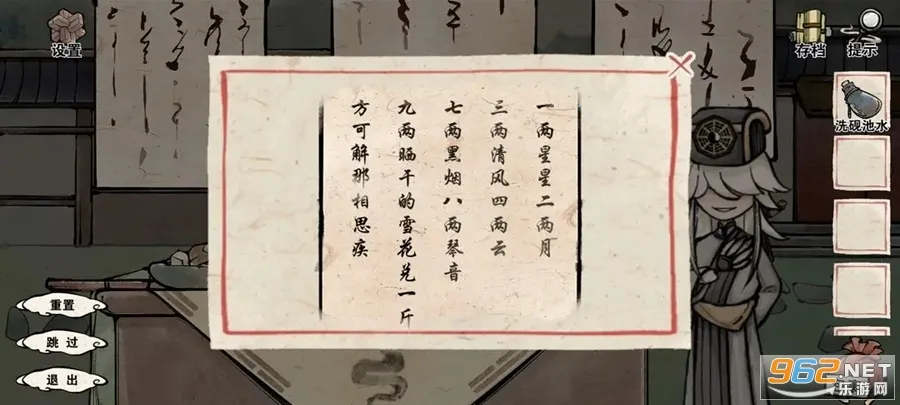 设置
存档
提示
洗砚池水
一两星星二两月
三两清风四两云
七两黑烟八两琴音
九两晒干的雪花兑一斤
方可解那相思疾
重置
跳过
退出
962.NET
乐游网